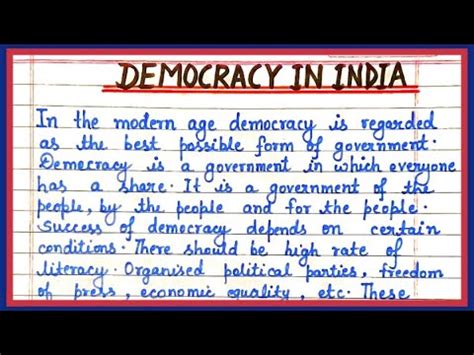 DEMOCRACY IN INDIA
In the modern age democracy is regarded
as the best possible form of government.
Democracy is a government in which everyone
has a share. It is a government of the
people, by the people and for the people.
Success of democracy depends on certain
conditions. There should be high rate of
literacy. Organised political parties, freedom
of press, economic equality, etc. These